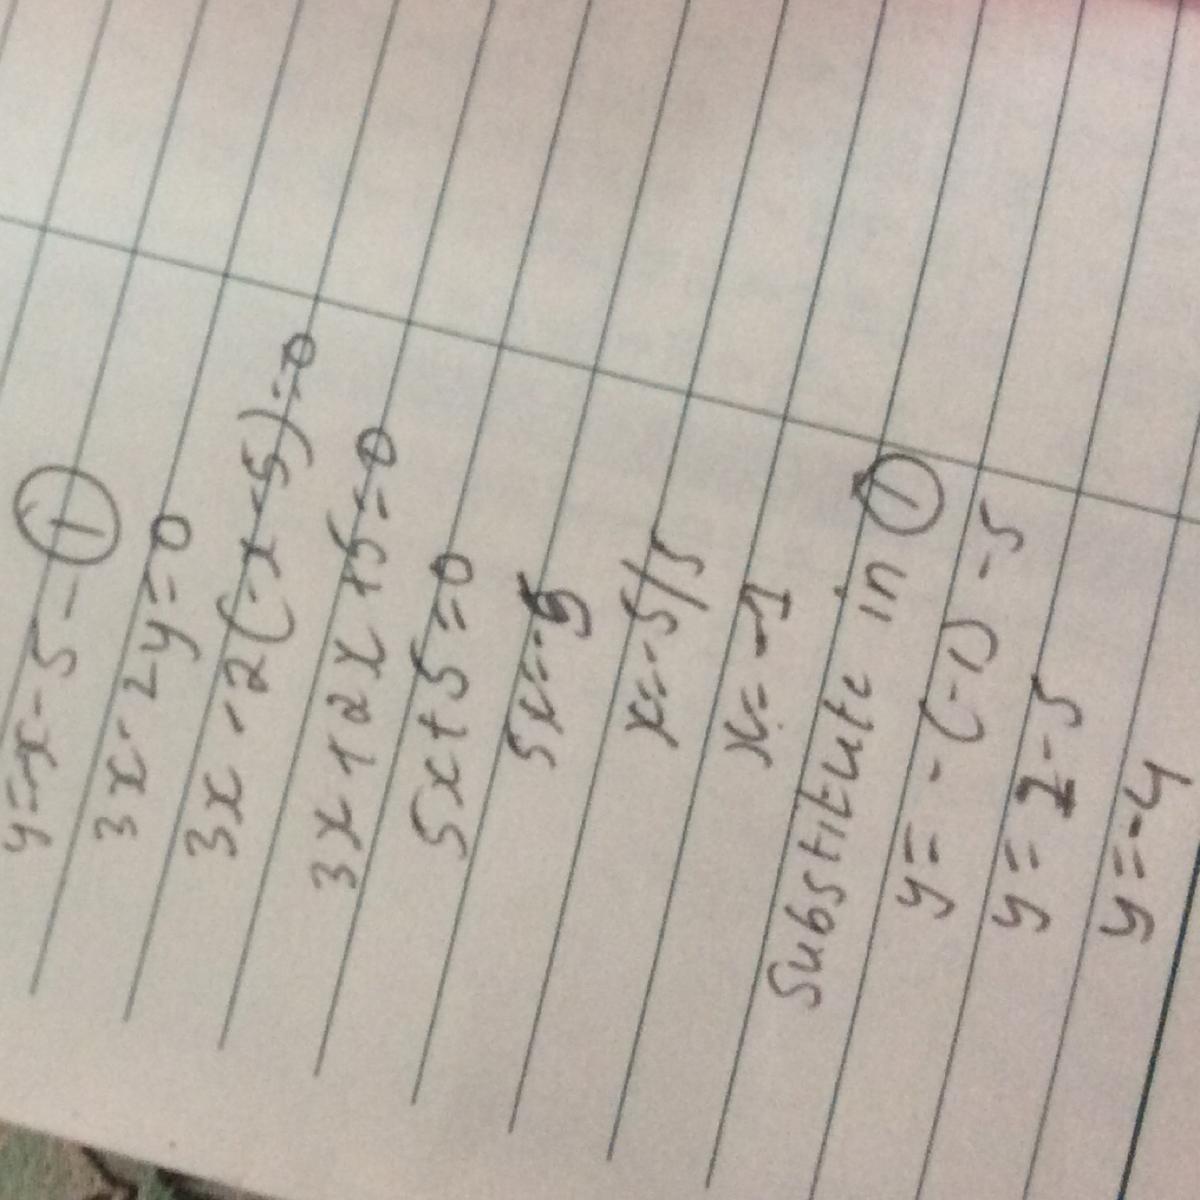 y=-x-5-①
3x-2y=0
3x-2(-x-5)=0
3x+2x+5=0
5x+5=0
5x=-5
x=-5/5
x=-1
Substitute in ①
y=-(-1)-5
y=1-5
y=-4